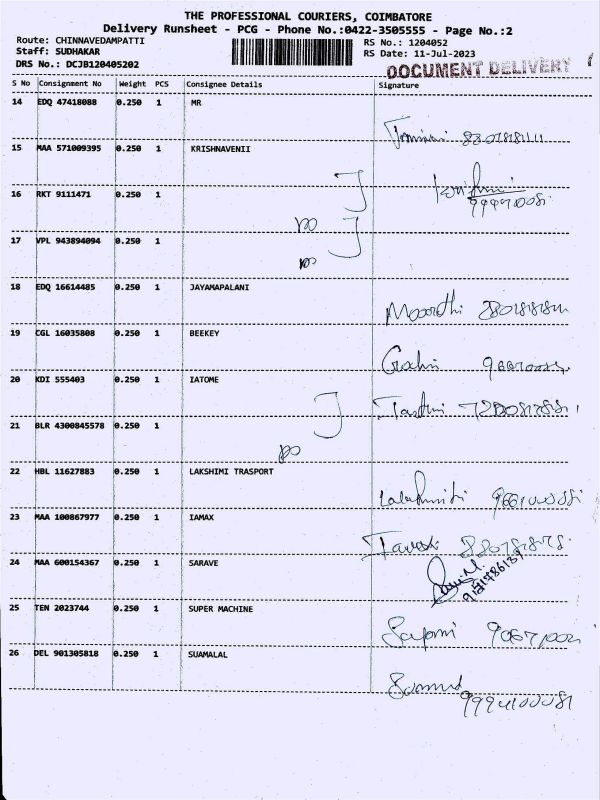 THE PROFESSIONAL COURIERS, COIMBATORE
Delivery Runsheet - PCG - Phone No.:0422-3505555 - Page No.:2
Route: CHINNAVEDAMPATTI RS No.: 1204052
Staff: SUDHAKAR RS Date: 11-Jul-2023
DRS No.: DCJB120405202 DOCUMENT DELIVERY
S No Consignment No Weight PCS Consignee Details Signature
14 EDQ 47418088 0.250 1 MR
15 MAA 571009395 0.250 1 KRISHNAVENII
16 RKT 9111471 0.250 1
17 VPL 943894094 0.250 1
18 EDQ 16614485 0.250 1 JAYAMAPALANI
Moorthi
19 CGL 16035808 0.250 1 BEEKEY
20 KDI 555403 0.250 1 IATOME
21 BLR 4300845578 0.250 1
22 HBL 11627883 0.250 1 LAKSHIMI TRASPORT
23 MAA 100867977 0.250 1 IAMAX
24 MAA 600154367 0.250 1 SARAVE
25 TEN 2023744 0.250 1 SUPER MACHINE
26 DEL 901305818 0.250 1 SUAMALAL